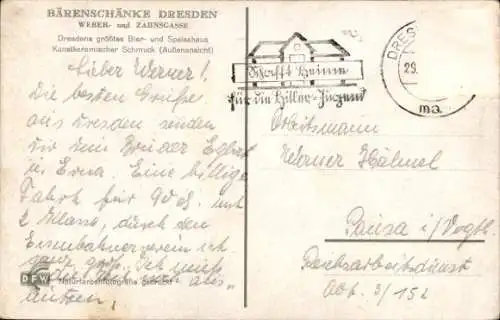 BÄRENSCHÄNKE DRESDEN
WEBER- und ZAHNSGASSE
Dresdens größtes Bier- und Speisehaus
Kunstkeramischer Schmuck (Außenansicht)
Lieber Werner!
Die besten Grüße
aus Dresden senden
dir dein Bruder
u. Erna. Eine billige
Fahrt für 90 mit
2 Klasse, durch den
Eisenbahnerverein ist
ganz groß. Ich
aus-
nützen.
DFW Naturfarbenfotografie
Schafft Heime
für die Hitler-Jugend
DRES
29.
ma
Arbeitsmann
Werner Hähnel
Pausa i/Vogtl.
Reichsarbeitsdienst
Abt. 3/152